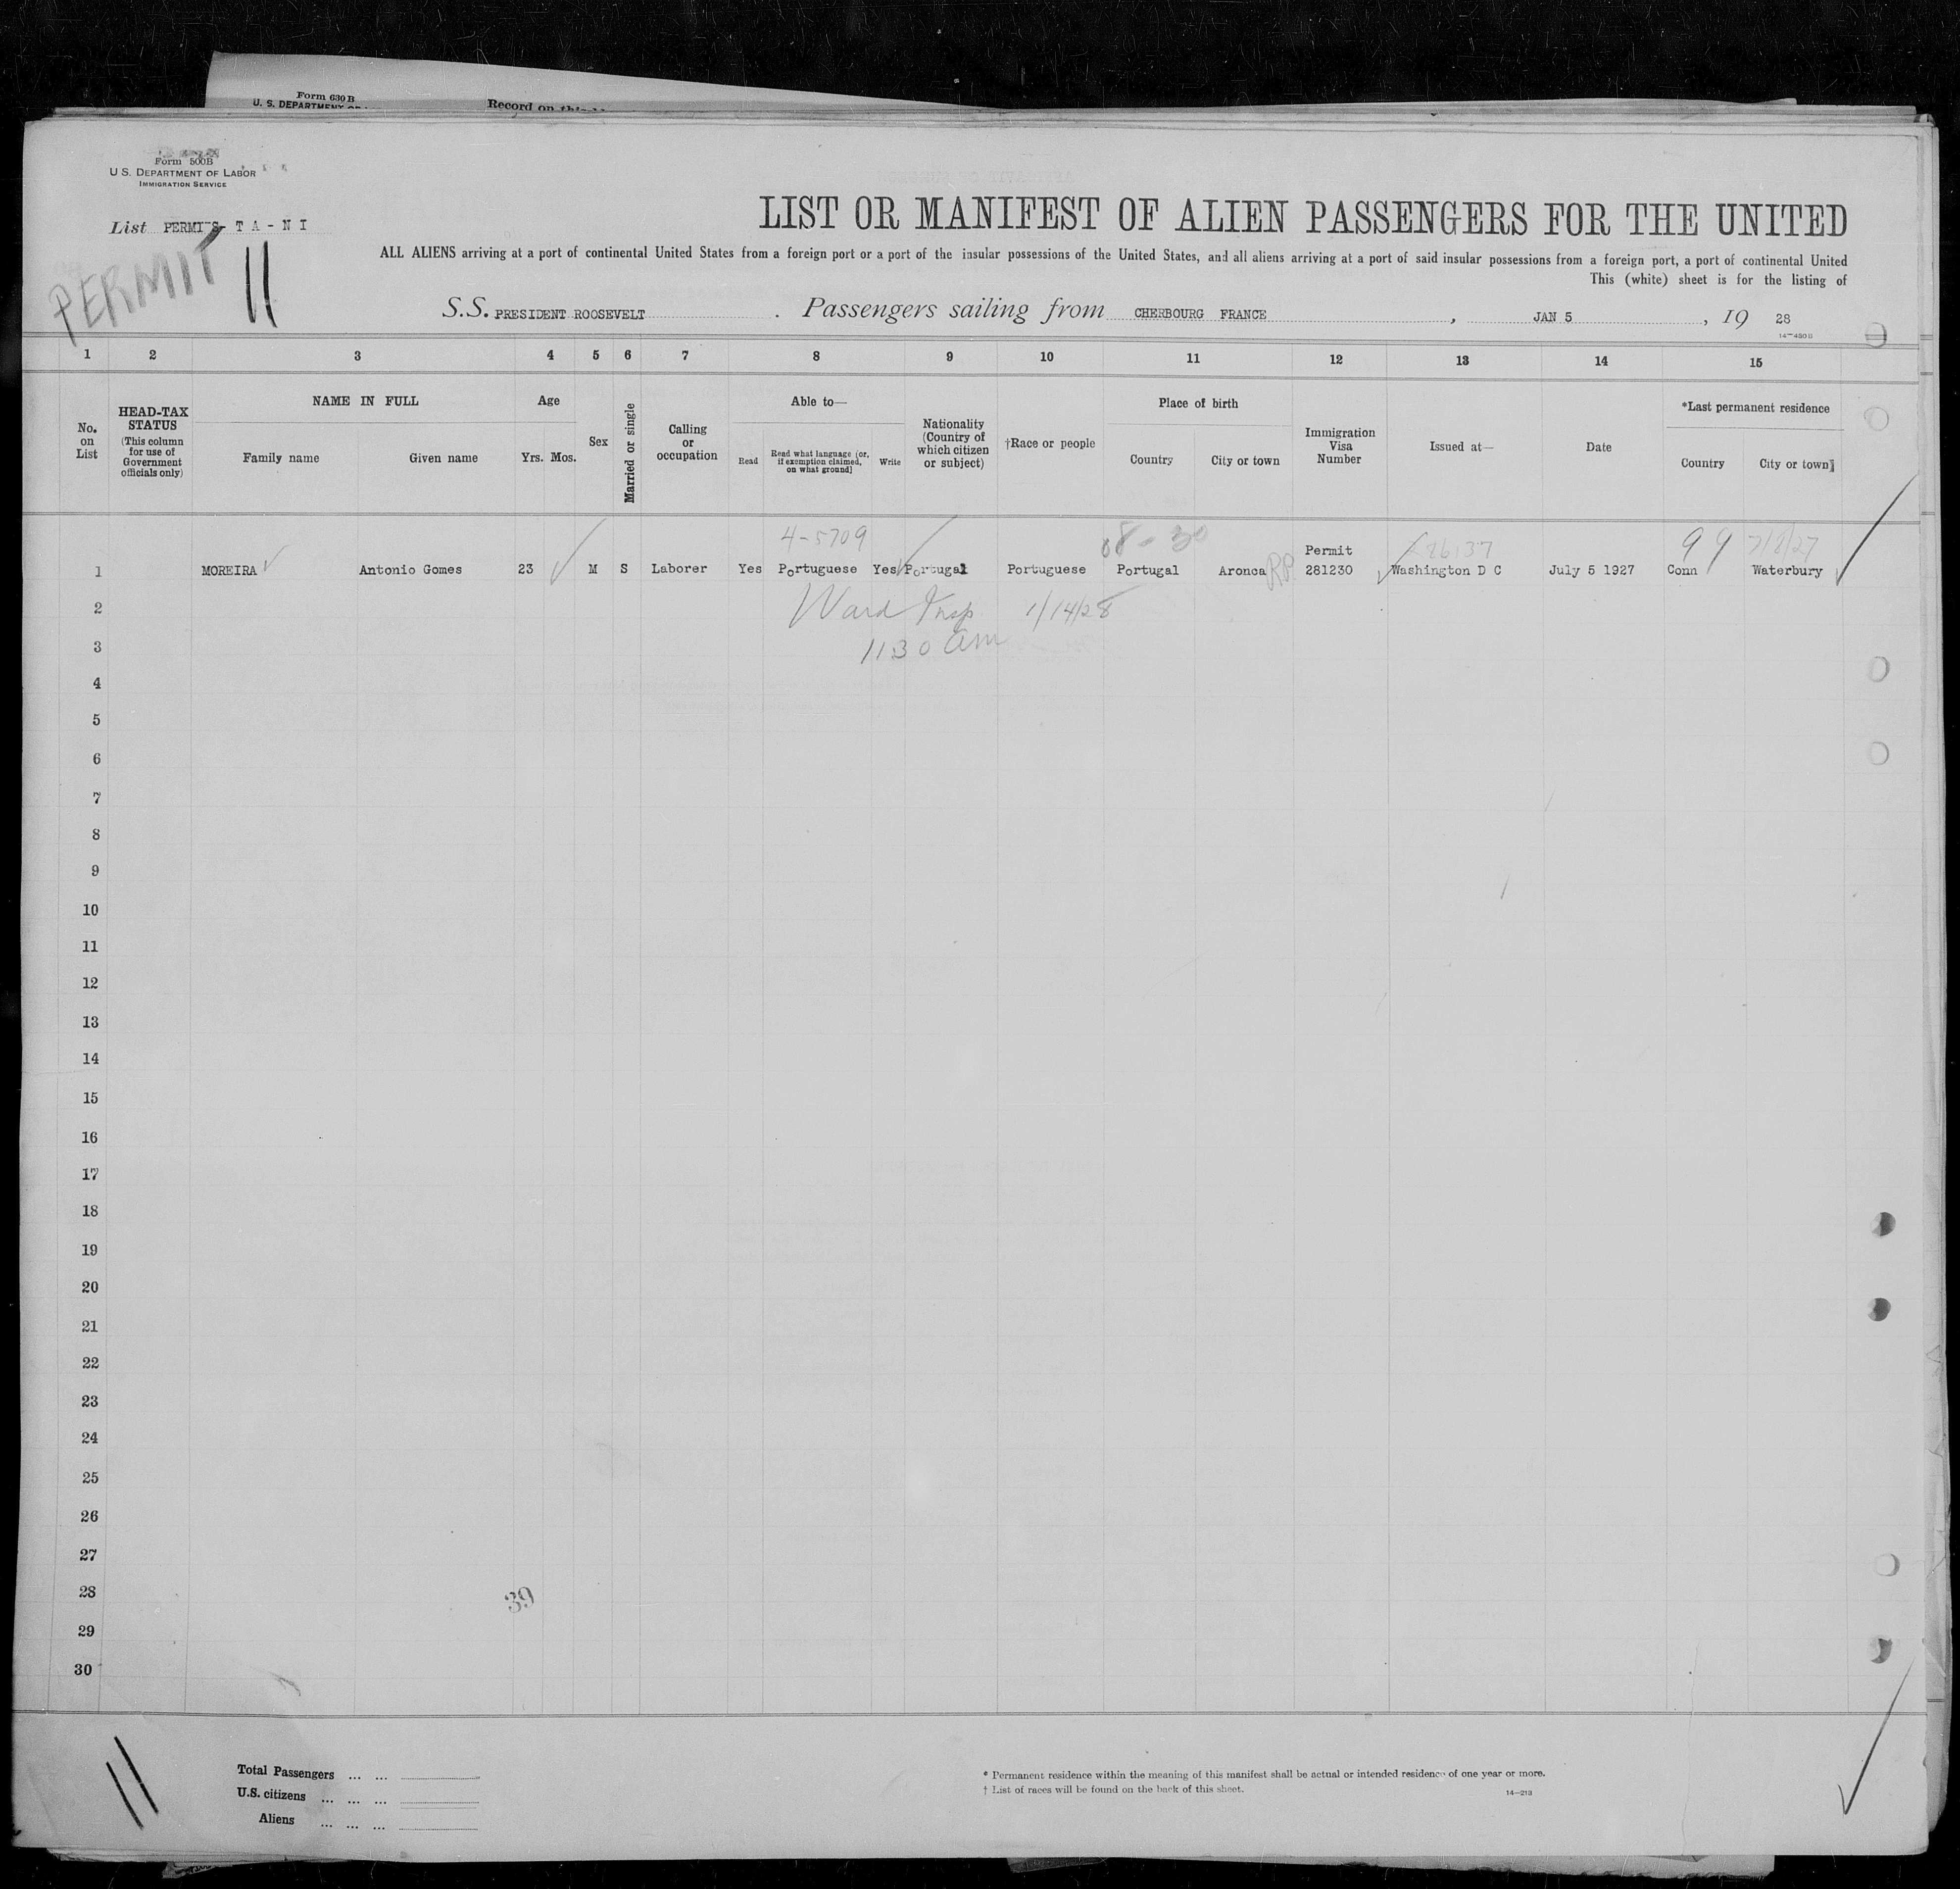 Form 630 B
U. S. DEPARTMENT
Record on this
Form 500B
U S. DEPARTMENT OF LABOR
IMMIGRATION SERVICE
List PERMITS- T A - N I
PERMIT 11
LIST OR MANIFEST OF ALIEN PASSENGERS FOR THE UNITED
ALL ALIENS arriving at a port of continental United States from a foreign port or a port of the insular possessions of the United States, and all aliens arriving at a port of said insular possessions from a foreign port, a port of continental United
This (white) sheet is for the listing of
S.S. PRESIDENT ROOSEVELT . Passengers sailing from CHERBOURG FRANCE , JAN 5 , 19 28
14—480 B
1 2 3 4 5 6 7 8 9 10 11 12 13 14 15
No. on List
HEAD-TAX STATUS
(This column for use of Government officials only)
NAME IN FULL
Family name Given name
Age
Yrs. Mos.
Sex
Married or single
Calling or occupation
Able to—
Read
Read what language (or, if exemption claimed, on what ground)
Write
Nationality (Country of which citizen or subject)
†Race or people
Place of birth
Country City or town
Immigration Visa Number
Issued at—
Date
*Last permanent residence
Country City or town
4-5709 08-30 99 7/8/27
1 MOREIRA Antonio Gomes 23 M S Laborer Yes Portuguese Yes Portugal Portuguese Portugal Aronca RP Permit 281230 Washington D C July 5 1927 Conn Waterbury
2 Ward Insp 1/14/28
3 1130 am
4
5
6
7
8
9
10
11
12
13
14
15
16
17
18
19
20
21
22
23
24
25
26
27
28 39
29
30
11
Total Passengers ... ...
U.S. citizens ... ... ...
Aliens ... ... ...
* Permanent residence within the meaning of this manifest shall be actual or intended residence of one year or more.
† List of races will be found on the back of this sheet.
14—213